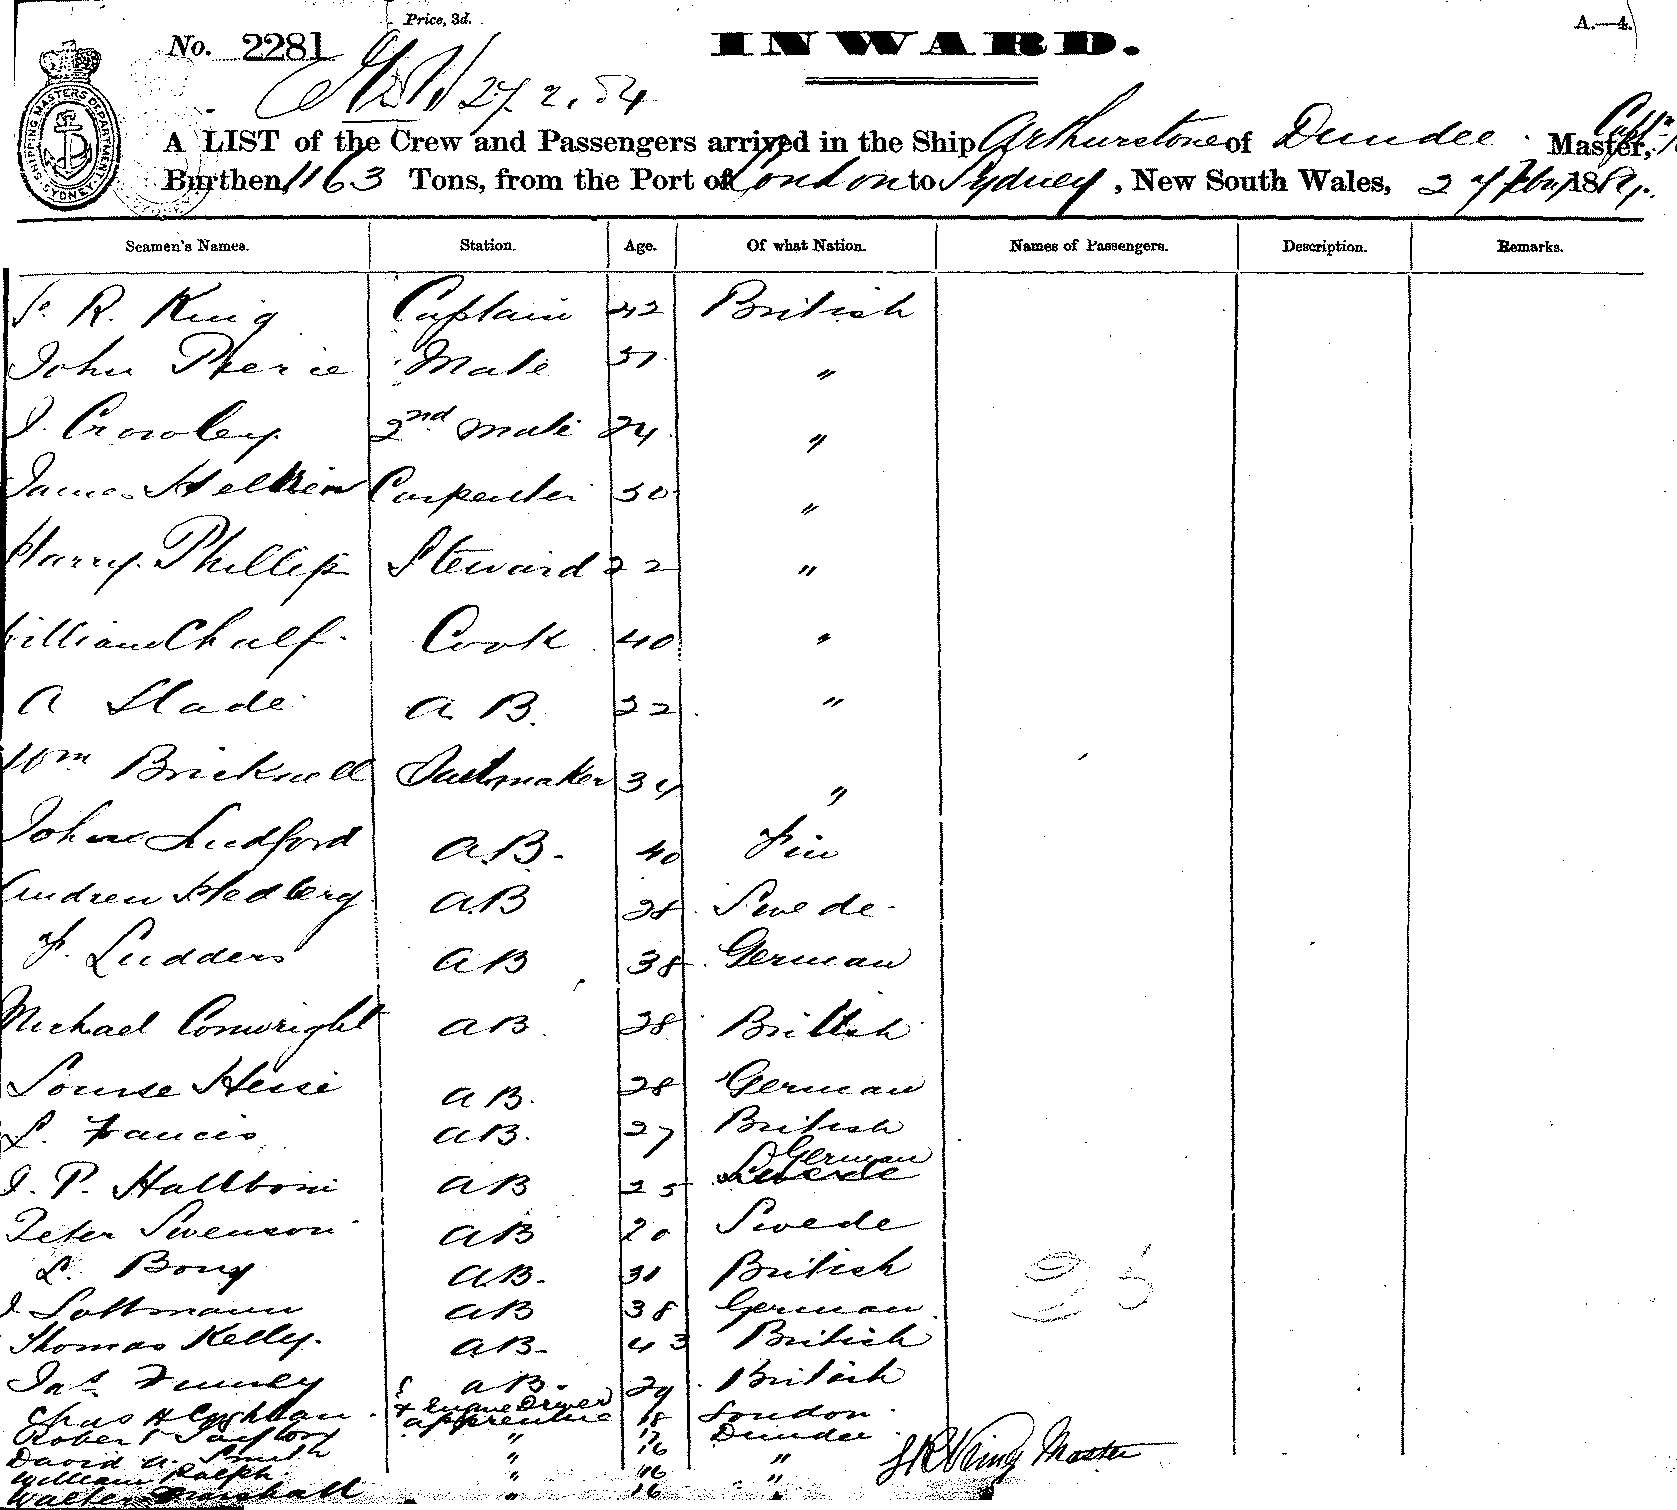 Price, 3d.
A.—4.
No. 2281
INWARD.
27. 2. 84
SHIPPING MASTERS DEPARTMENT SYDNEY
A LIST of the Crew and Passengers arrived in the Ship Arthurstone of Dundee Master,
Burthen 1163 Tons, from the Port of London to Sydney, New South Wales, 2 1884.
Seamen's Names. Station. Age. Of what Nation. Names of Passengers. Description. Remarks.
R. King Captain 42 British
John Pierie Mate 31 "
Crowley 2nd Mate 24 "
James Carpenter 30 "
Harry Phillips Steward 22 "
William Chalf Cook 40 "
A Slade A B. 22 "
Wm Bricknell Sailmaker 34 "
John Ludford A.B. 40 Fin
Andrew Hedberg A.B 28 Swede
F. Ludders A B 38 German
Michael Conwright A B. 28 British
Louise Hesse A B. 28 German
L. Francis A B. 27 British
German
J. P. Hallboni A B 25 Swede
Peter Swenson A B 20 Swede
L. Bony A B. 31 British
J Soltmann A B 38 German
Thomas Kelly. A B. 43 British
Jas A B. 29 British
& Engine Driver
Chas H apprentice 18 London
Robert " 17 Dundee
David A. Smith " 16 "
William Ralph " 16 "
Walter " 16 "
25
J R King Master